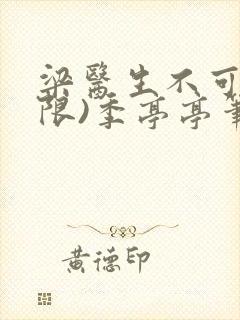 梁醫生不可
限)季亭亭筆
黃德印